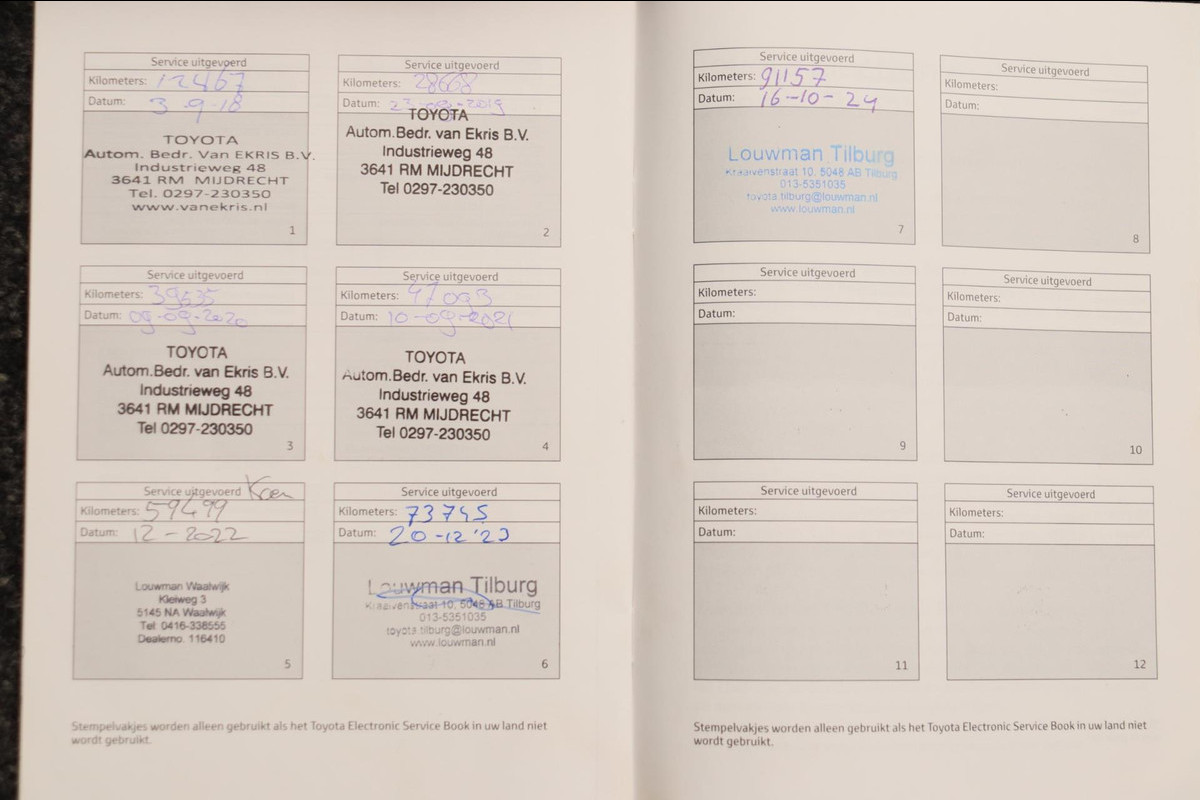 Service uitgevoerd
Kilometers: 12467
Datum: 3-9-18
TOYOTA
Autom. Bedr. Van EKRIS B.V.
Industrieweg 48
3641 RM MIJDRECHT
Tel. 0297-230350
www.vanekris.nl
1
Service uitgevoerd
Kilometers: 28668
Datum: 23-09-2019
TOYOTA
Autom.Bedr. van Ekris B.V.
Industrieweg 48
3641 RM MIJDRECHT
Tel 0297-230350
2
Service uitgevoerd
Kilometers: 39635
Datum: 09-09-2020
TOYOTA
Autom.Bedr. van Ekris B.V.
Industrieweg 48
3641 RM MIJDRECHT
Tel 0297-230350
3
Service uitgevoerd
Kilometers: 47093
Datum: 10-09-2021
TOYOTA
Autom.Bedr. van Ekris B.V.
Industrieweg 48
3641 RM MIJDRECHT
Tel 0297-230350
4
Service uitgevoerd
Kilometers: 59499
Datum: 12-2022
Louwman Waalwijk
Kleiweg 3
5145 NA Waalwijk
Tel. 0416-338555
Dealerno. 116410
5
Service uitgevoerd
Kilometers: 73745
Datum: 20-12'23
Louwman Tilburg
Kraaivenstraat 10, 5048 AB Tilburg
013-5351035
toyota.tilburg@louwman.nl
www.louwman.nl
6
Stempelvakjes worden alleen gebruikt als het Toyota Electronic Service Book in uw land niet
wordt gebruikt.
Service uitgevoerd
Kilometers: 91157
Datum: 16-10-24
Louwman Tilburg
Kraaivenstraat 10, 5048 AB Tilburg
013-5351035
toyota.tilburg@louwman.nl
www.louwman.nl
7
Service uitgevoerd
Kilometers:
Datum:
8
Service uitgevoerd
Kilometers:
Datum:
9
Service uitgevoerd
Kilometers:
Datum:
10
Service uitgevoerd
Kilometers:
Datum:
11
Service uitgevoerd
Kilometers:
Datum:
12
Stempelvakjes worden alleen gebruikt als het Toyota Electronic Service Book in uw land niet
wordt gebruikt.